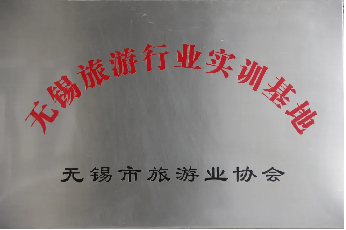 无锡旅游行业实训基地
无锡市旅游业协会